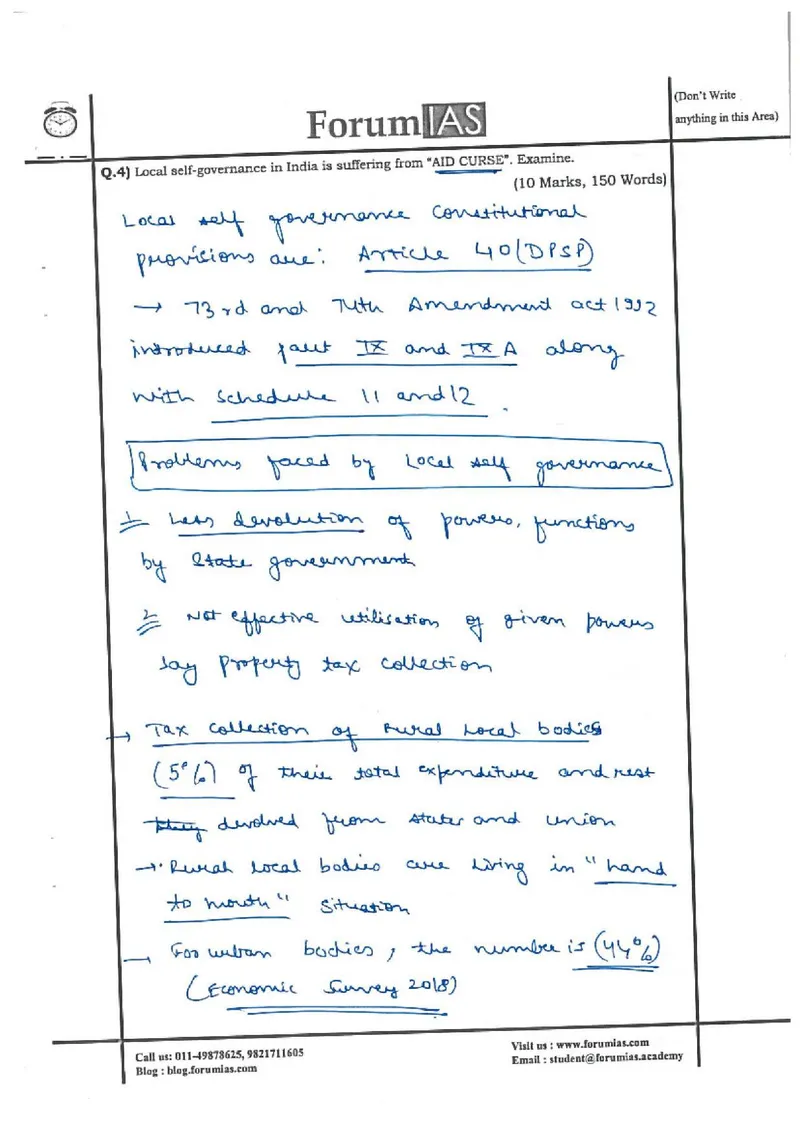 (Don't Write
anything in this Area)
ForumIAS
Q.4) Local self-governance in India is suffering from "AID CURSE". Examine.
(10 Marks, 150 Words)
Local self governance Constitutional
provisions are: Article 40 (DPSP)
→ 73rd and 74th Amendment act 1992
introduced part IX and IX A along
with Schedule 11 and 12.
Problems faced by Local self governance
1 Less devolution of powers, functions
by State government
2 Not effective utilisation of given powers
say property tax collection
→ Tax collection of Rural Local bodies
(5%) of their total expenditure and rest
devolved from states and union
→ Rural local bodies are living in "hand
to mouth" situation
→ For urban bodies, the number is (44%)
(Economic Survey 2018)
Call us: 011-49878625, 9821711605
Blog : blog.forumias.com
Visit us : www.forumias.com
Email : student@forumias.academy